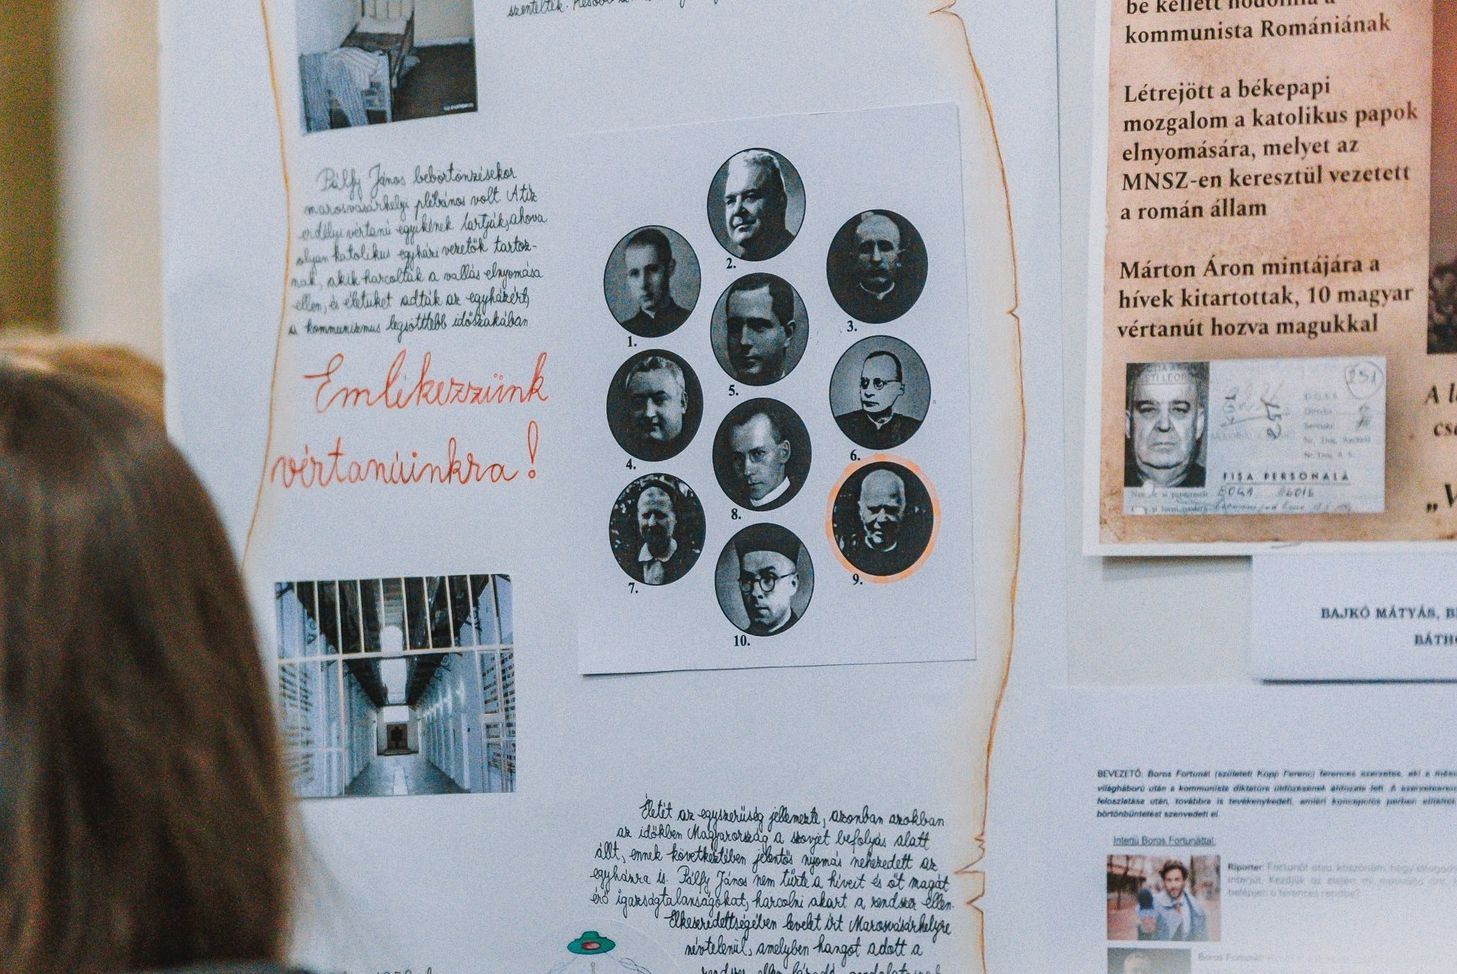 szentelték.
Pálffy János bebörtönzésekor
marosvásárhelyi plébános volt. A tíz
erdélyi vértanú egyikének tartják, ahova
olyan katolikus egyházi vezetők tartoz-
nak, akik harcoltak a vallás elnyomása
ellen, és életüket adták az egyházért,
a kommunizmus legsötétebb időszakában
Emlékezzünk
vértanúinkra!
1.
2.
3.
4.
5.
6.
7.
8.
9.
10.
Életét az egyszerűség jellemezte, azonban azokban
az időkben Magyarország a szovjet befolyás alatt
állt, ennek következtében jelentős nyomás nehezedett az
egyházra is. Pálfy János nem tűrte a híveit és őt magát
érő igazságtalanságokat, harcolni akart a rendszer ellen.
Elkeseredettségében levelet írt Marosvásárhelyre
névtelenül, amelyben hangot adott a
be kellett hódolnia a
kommunista Romániának
Létrejött a békepapi
mozgalom a katolikus papok
elnyomására, melyet az
MNSZ-en keresztül vezetett
a román állam
Márton Áron mintájára a
hívek kitartottak, 10 magyar
vértanút hozva magukkal
251
FIȘA PERSONALĂ
BOGA
A l
cs
„V
BAJKÓ MÁTYÁS, B
BÁTH
BEVEZETŐ: Boros Fortunát (született Kopp Ferenc) ferences szerzetes, aki a
világháború után a kommunista diktatúra üldözésének áldozata lett. A
feloszlatása után, továbbra is tevékenykedett, emiatt koncepciós perben
börtönbüntetést szenvedett el.
Interjú Boros Fortunáttal
Riporter: Fortunát atya, köszönöm, hogy elfogadta
interjút. Kezdjük az elején
belépjen a ferences rendbe?